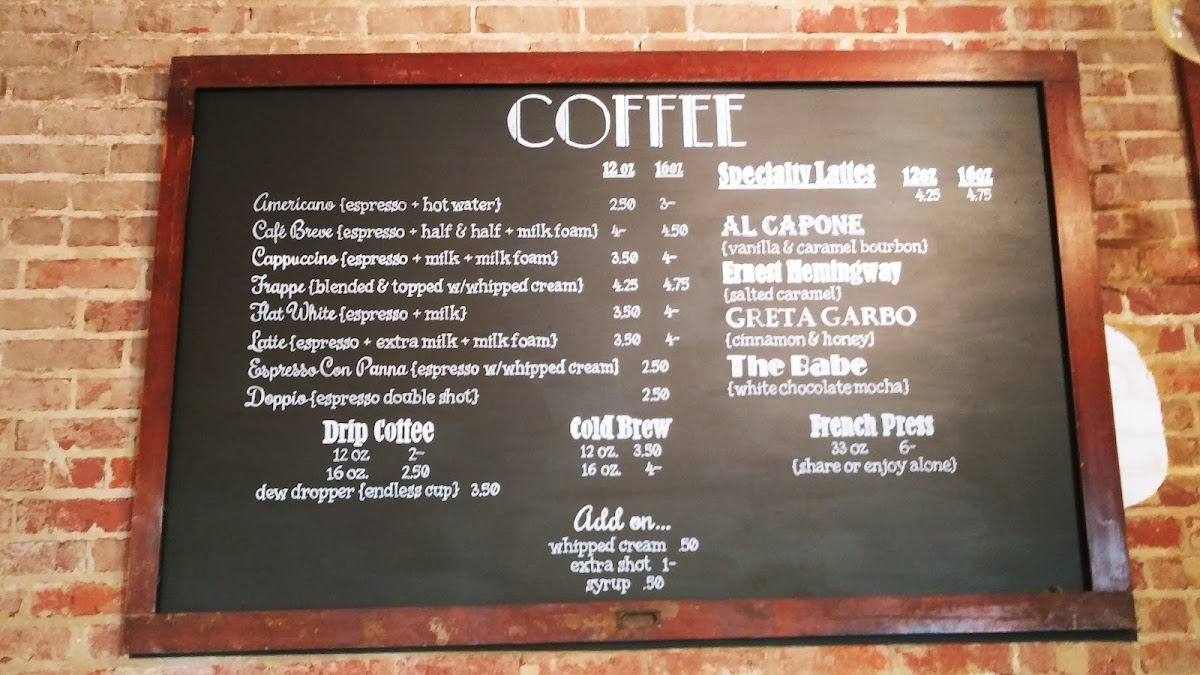 COFFEE
12 oz 16oz
Americano {espresso + hot water} 2.50 3-
Café Breve {espresso + half & half + milk foam} 4- 4.50
Cappuccino {espresso + milk + milk foam} 3.50 4-
Frappe {blended & topped w/whipped cream} 4.25 4.75
Flat White {espresso + milk} 3.50 4-
Latte {espresso + extra milk + milk foam} 3.50 4-
Espresso Con Panna {espresso w/whipped cream} 2.50
Doppio {espresso double shot} 2.50
Specialty Lattes 12oz 16oz
4.25 4.75
AL CAPONE
{vanilla & caramel bourbon}
Ernest Hemingway
{salted caramel}
GRETA GARBO
{cinnamon & honey}
The Babe
{white chocolate mocha}
Drip Coffee
12 oz 2-
16 oz. 2.50
dew dropper {endless cup} 3.50
Cold Brew
12 oz. 3.50
16 oz. 4-
French Press
33 oz 6-
{share or enjoy alone}
Add on...
whipped cream .50
extra shot 1-
syrup .50